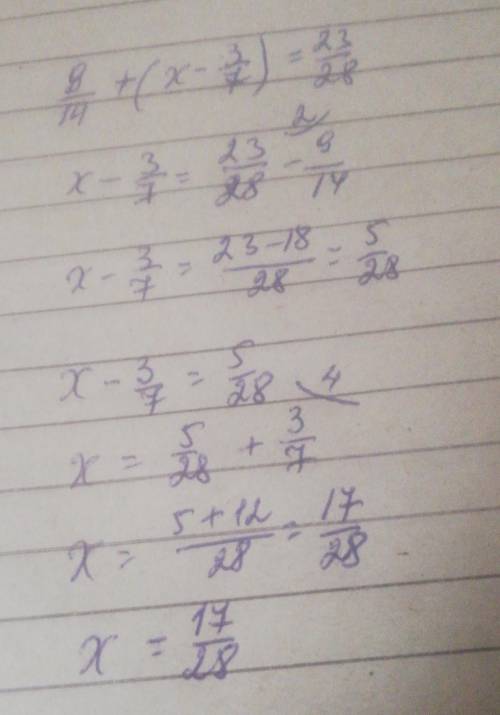 9/14 + (x - 3/7) = 23/28
x - 3/7 = 23/28 - 9/14 2
x - 3/7 = 23-18/28 = 5/28
x - 3/7 = 5/28
x = 5/28 + 3/7 4
x = 5+12/28 = 17/28
x = 17/28